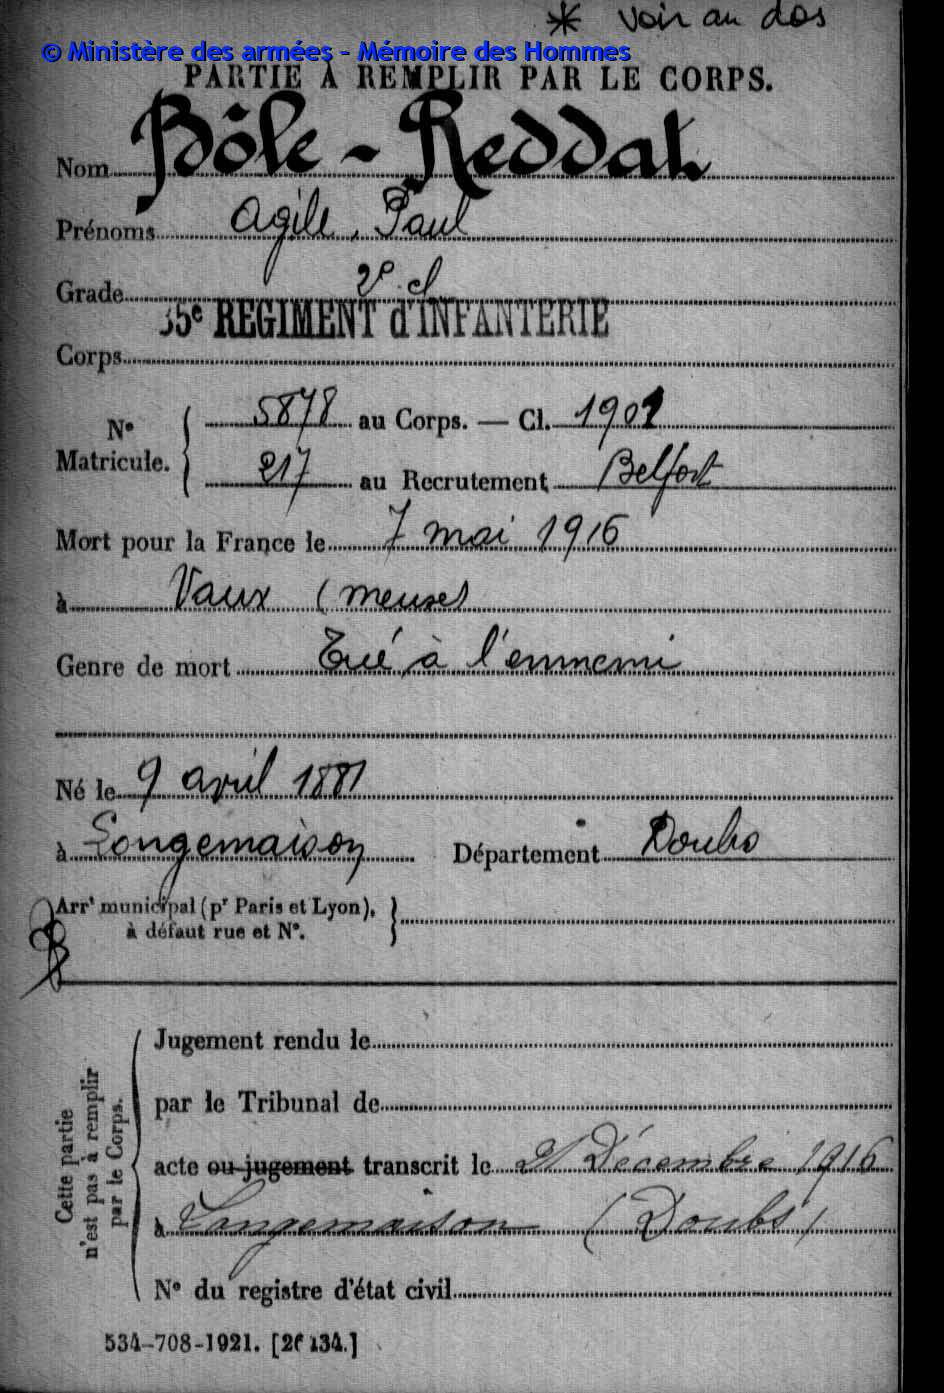 * voir au dos
© Ministère des armées - Mémoire des Hommes
PARTIE À REMPLIR PAR LE CORPS.
Nom Bôle-Reddat
Prénoms Agile, Paul
Grade 2e cl
35e REGIMENT d'INFANTERIE
Corps
No Matricule. 5878 au Corps. — Cl. 1901
217 au Recrutement Belfort
Mort pour la France le 7 mai 1916
à Vaux (meuse)
Genre de mort Tué à l'ennemi
Né le 9 avril 1881
à Longemaison Département Doubs
Arrt municipal (pr Paris et Lyon),
à défaut rue et No.
Cette partie
n'est pas à remplir
par le Corps.
Jugement rendu le
par le Tribunal de
acte ou jugement transcrit le 21 Décembre 1916
à Longemaison (Doubs)
No du registre d'état civil
534-708-1921. [26134.]